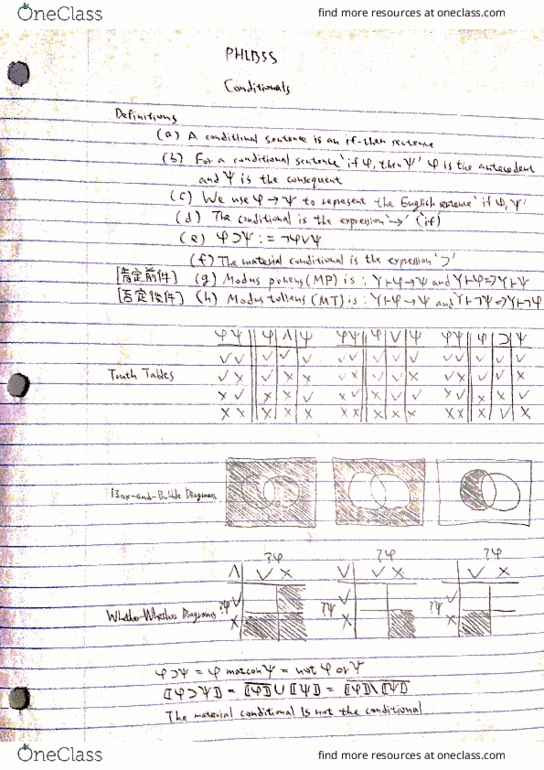 OneClass find more resources at oneclass.com
Conditionals
Definitions
(a) A conditional sentence is an if-then sentence
(b) For a conditional sentence 'if φ, then ψ' φ is the antecedent
and ψ is the consequent
(c) We use φ→ψ to represent the English sentence 'if φ, ψ'
(d) The conditional is the expression '→' (if)
(e) φ⊃ψ := ¬φ∨ψ
(f) The material conditional is the expression '⊃'
[肯定前件] (g) Modus ponens (MP) is : γ⊢φ→ψ and γ⊢φ⇒γ⊢ψ
[否定後件] (h) Modus tollens (MT) is : γ⊢φ→ψ and γ⊢¬ψ⇒γ⊢¬φ
φ ψ φ ∧ ψ φ ψ φ ∨ ψ φ ψ φ ⊃ ψ
✓ ✓ ✓ ✓ ✓ ✓ ✓ ✓ ✓ ✓ ✓ ✓ ✓ ✓ ✓
Truth Tables ✓ × ✓ × × ✓ × ✓ ✓ × ✓ × ✓ × ×
× ✓ × × ✓ × ✓ × ✓ ✓ × ✓ × ✓ ✓
× × × × × × × × × × × × × ✓ ×
Box-and-Bubble Diagrams
?φ ?φ ?φ
∧ ✓ × ∨ ✓ × ✓ ×
?ψ ✓ ✓ ✓
Whether-Whether Diagrams × ?ψ × ?ψ ×
φ⊃ψ = φ matcon ψ = not φ or ψ
The material conditional is not the conditional
OneClass find more resources at oneclass.com